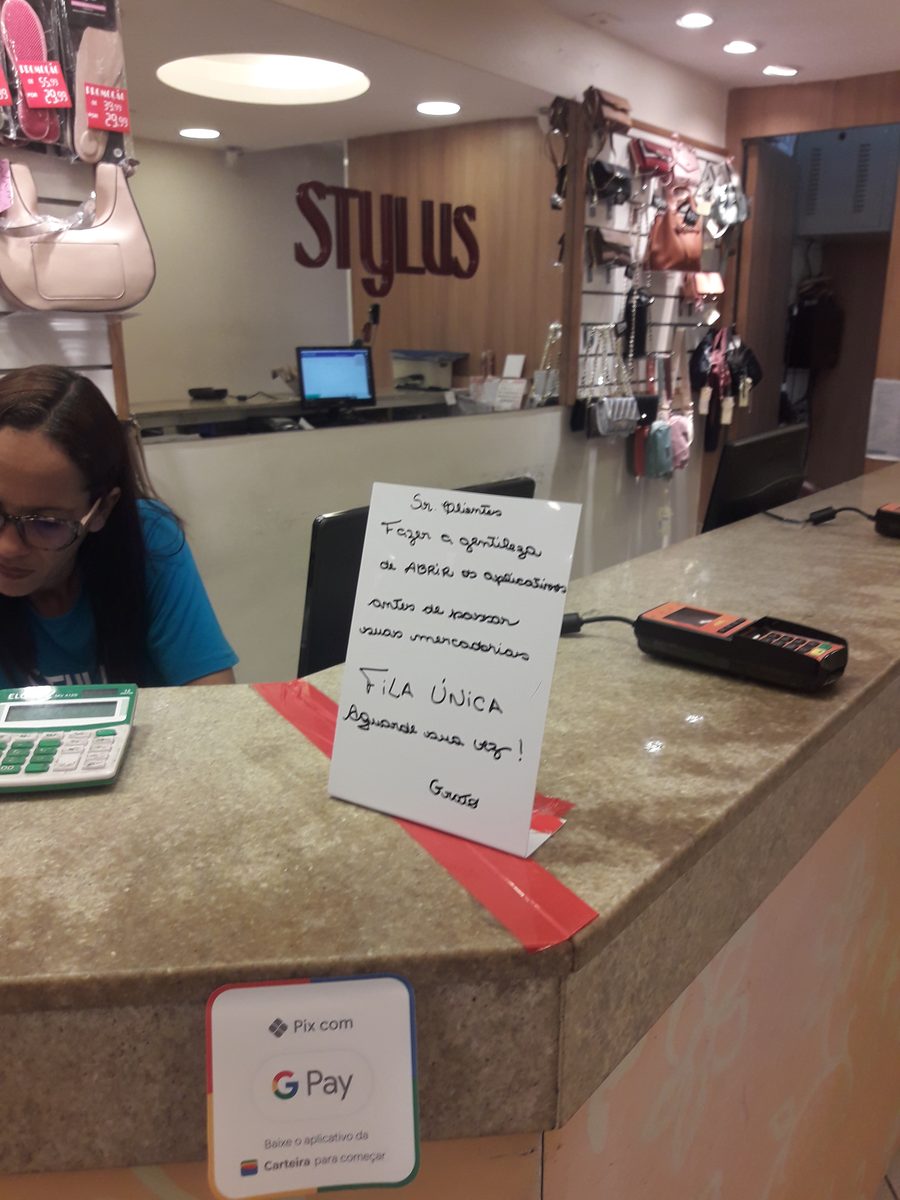 PROMOÇÃO
DE 55,99
POR 29,99
PROMOÇÃO
DE 39,99
POR 29,99
STYLUS
Sr. Clientes
Fazer a gentileza
de ABRIR os aplicativos
antes de passar
suas mercadorias
FILA ÚNICA
Aguarde sua vez!
Pix com
G Pay
Baixe o aplicativo da
Carteira para começar